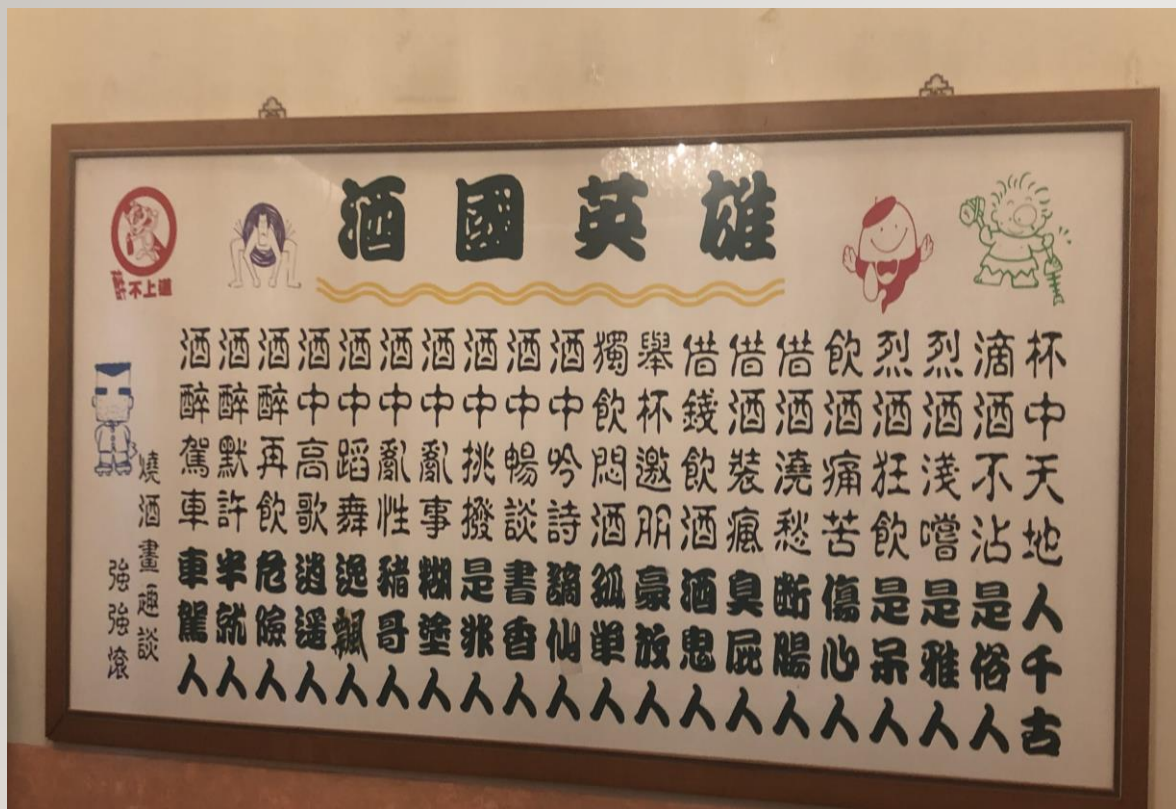 酒國英雄
杯中天地人千古
滴酒不沾是俗人
烈酒淺嚐是雅人
烈酒狂飲是呆人
飲酒痛苦傷心人
借酒澆愁断腸人
借酒裝瘋臭屁人
借錢飲酒酒鬼人
舉杯邀朋豪放人
獨飲悶酒孤単人
酒中吟詩謫仙人
酒中暢談書香人
酒中挑撥是非人
酒中亂事糊塗人
酒中亂性豬哥人
酒中蹈舞逸飄人
酒中高歌逍遙人
酒醉再飲危險人
酒醉默許半就人
酒醉駕車車駕人
燒酒畫趣談
強強滾
不上道